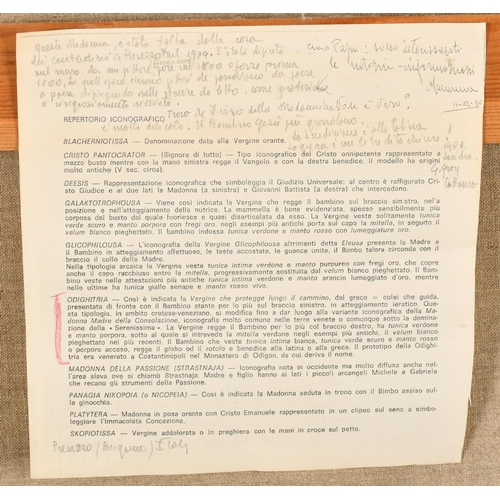 questa Madonna, è stata tolta dalla casa
dei contadini a Presezzo nel 1979. È stata dipinta
sul muro da un pittore
Trovo il viso della Madonna
è molto
REPERTORIO ICONOGRAFICO
BLACHERNIOTISSA — Denominazione data alla Vergine orante.
CRISTO PANTOCRATOR — (Signore di tutto) - Tipo iconografico del Cristo onnipotente rappresentato a
mezzo busto mentre con la mano sinistra regge il Vangelo e con la destra benedice. Il modello ha origini
molto antiche (V sec. circa).
DEESIS — Rappresentazione iconografica che simboleggia il Giudizio Universale: al centro è raffigurato Cri-
sto Giudice e ai due lati la Madonna (a sinistra) e Giovanni Battista (a destra) che intercedono.
GALAKTOTROPHOUSA — Viene così indicata la Vergine che regge il bambino sul braccio sinistro, nel'a
posizione e nell'atteggiamento della nutrice. La mammella è bene evidenziata, spesso sensibilmente più
corposa del busto dal quale fuoresce e quasi disarticolata da esso. La Vergine veste solitamente tunica
verde scuro e manto porpora con fregi oro, negli esempi più antichi porta sul capo la mitella, in seguito il
velum bianco pieghettato. Il bambino indossa tunica verdone e manto rosso con lumeggiature oro.
GLICOPHILOUSA — L'iconografia della Vergine Glicophilousa altrimenti detta Eleusa presenta la Madre e
il Bambino in atteggiamento affettuoso, le teste accostate, le guance unite, il Bimbo talora circonda con il
braccio il collo della Madre.
Nella tipologia arcaica la Vergine veste tunica intima verdone e manto purpureo con fregi oro, che copre
anche il capo racchiuso entro la mitella, progressivamente sostituita dal velum bianco pieghettato. Il Bam-
bino veste nelle attestazioni più antiche tunica intima verdone e manto arancio lumeggiato d'oro, mentre
nelle ultime ha tunica giallo senape e manto rosso vivo.
ODIGHITRIA — Così è indicata la Vergine che protegge lungo il cammino, dal greco « colei che guida,
presentata di fronte con il Bambino stante per lo più sul braccio sinistro, in atteggiamento ieratico. Que-
sta tipologia, in ambito cretese-veneziano, si modifica fino a dar luogo alla variante iconografica della Ma-
donna Madre della Consolazione, iconografia molto comune nelle terre venete o comunque sotto la domina-
zione della « Serenissima ». La Vergine regge il Bambino per lo più col braccio destro, ha tunica verdone
e manto porpora, sotto al quale si intravede la mitella verdone negli esempi più antichi, il velum bianco
pieghettato nei più recenti. Il Bambino che veste tunica intima bianca, tunica verde scuro e manto rosso
o porpora acceso, regge il globo od il rotolo e benedice alla latina o alla greca. Il prototipo della Odighi-
tria era venerato a Costantinopoli nel Monastero di Odigon, da cui deriva il nome.
MADONNA DELLA PASSIONE (STRASTNAJA) — Iconografia nota in occidente ma molto diffusa anche nel-
l'area slava ove si chiamò Strastnaja. Madre e figlio hanno ai lati i piccoli arcangeli Michele e Gabriele
che recano gli strumenti della Passione.
PANAGIA NIKOPOIA (o NICOPEIA) — Così è indicata la Madonna seduta in trono con il Bimbo assiso sul-
le ginocchia.
PLATYTERA — Madonna in posa orante con Cristo Emanuele rappresentato in un clipeo sul seno a simbo-
leggiare l'Immacolata Concezione.
SKOPIOTISSA — Vergine addolorata o in preghiera con le mani in croce sul petto.
Presezzo / Bergamo / Italy